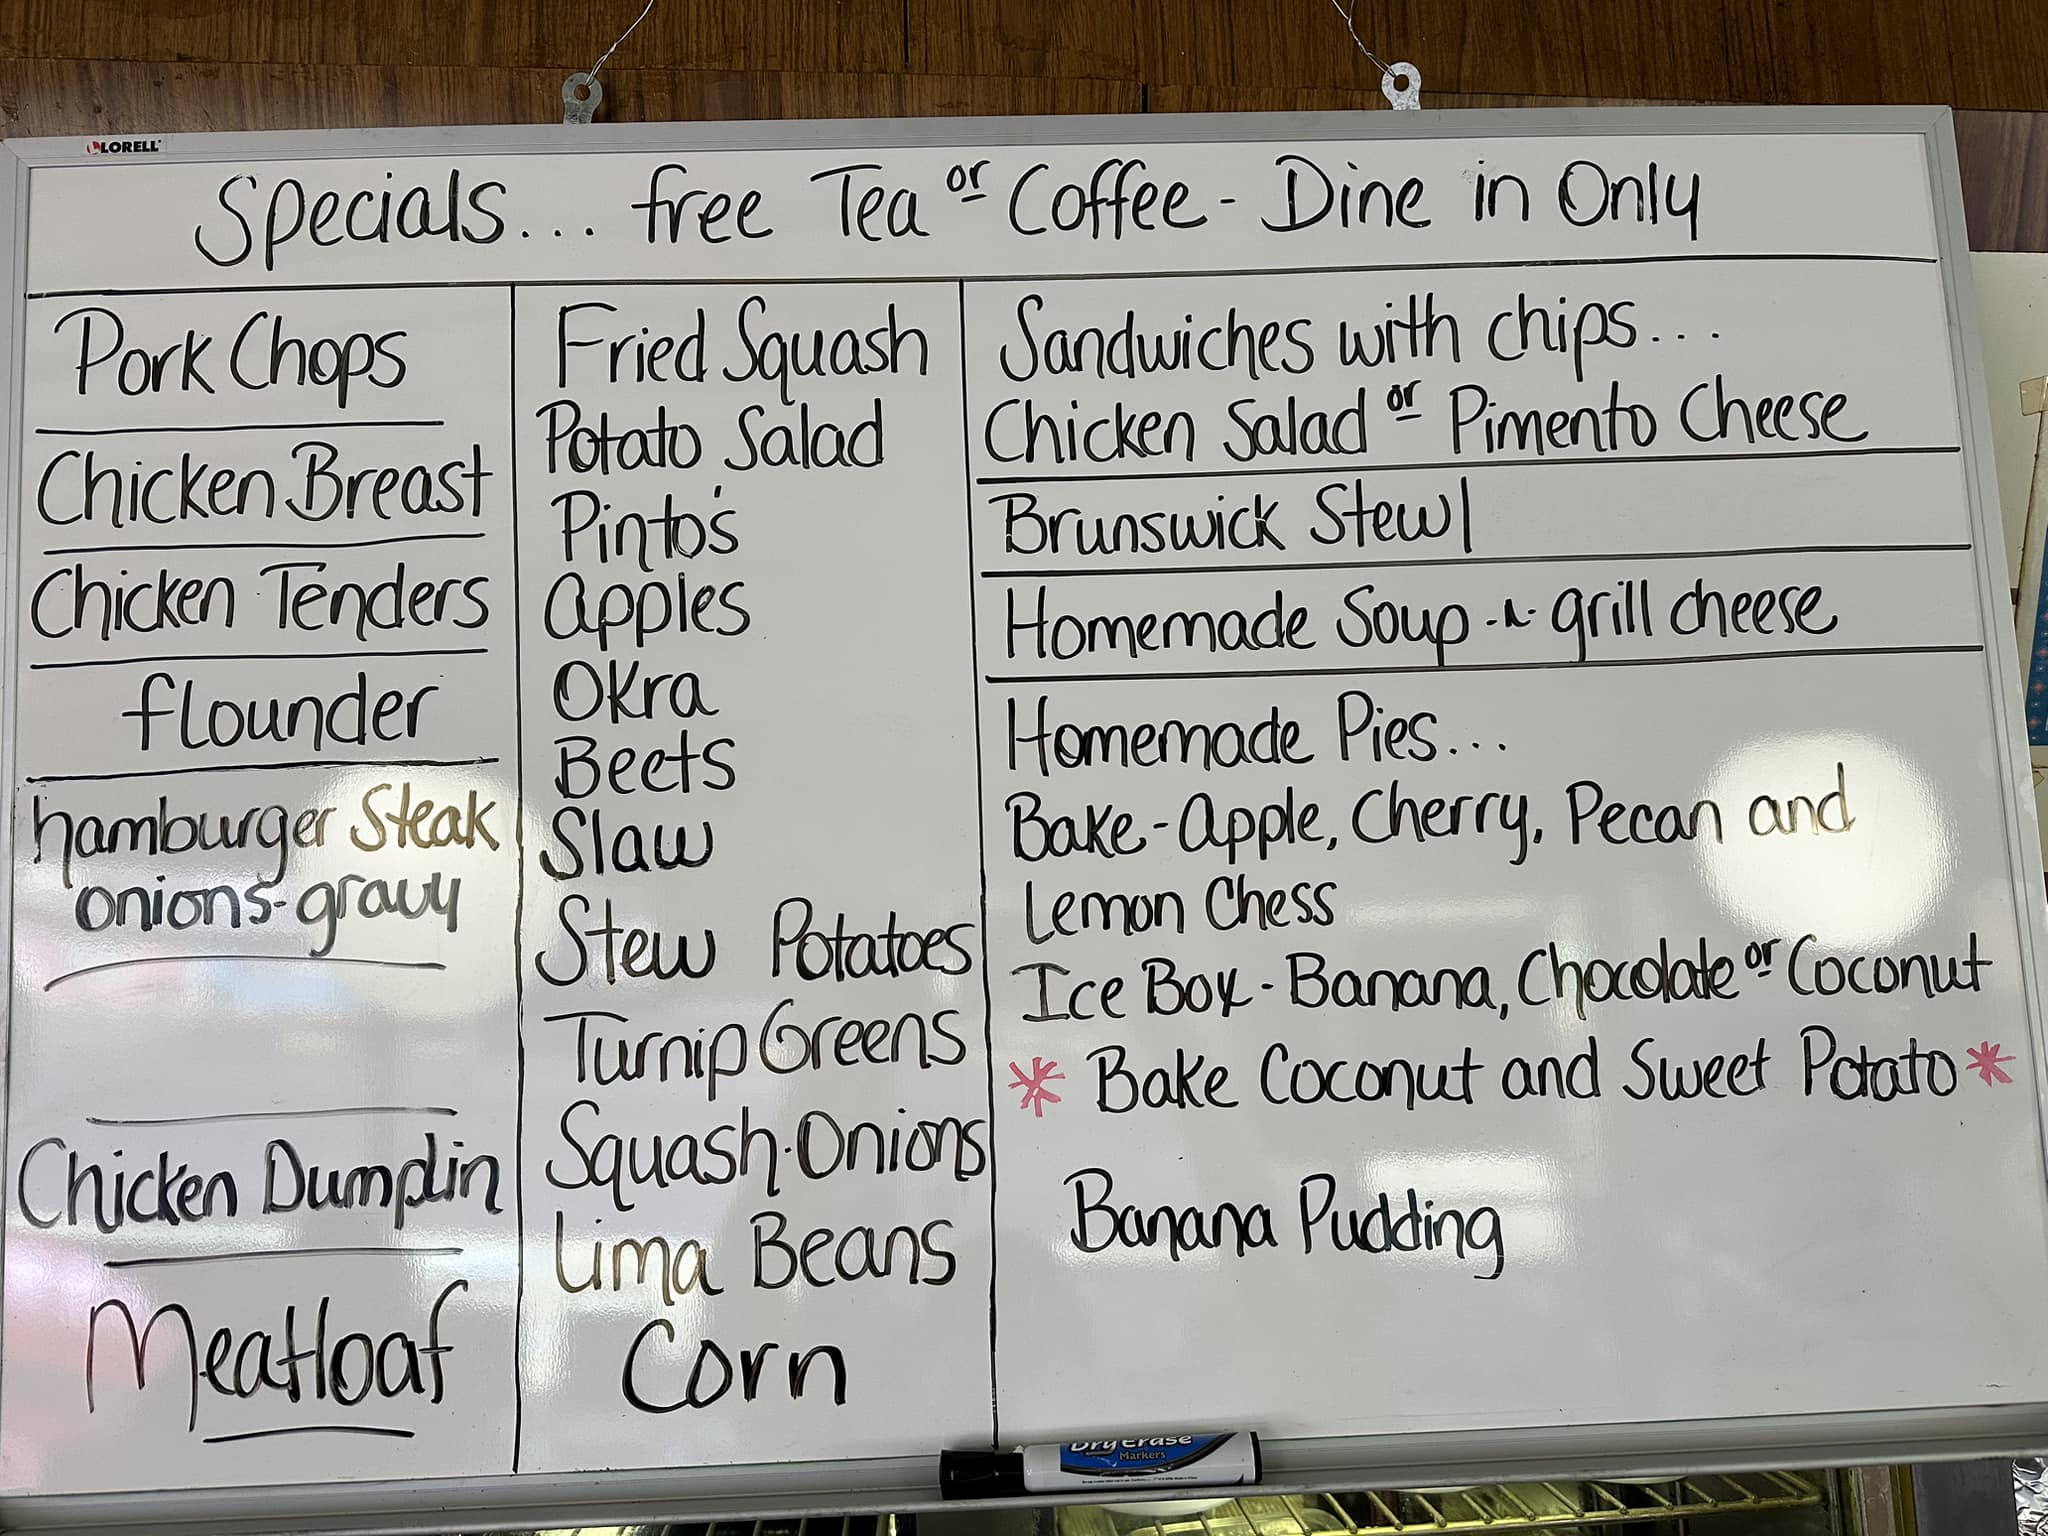 LORELL
Specials... free Tea or Coffee - Dine in Only
Pork Chops
Chicken Breast
Chicken Tenders
flounder
hamburger Steak
onions-gravy
Chicken Dumplin
Meatloaf
Fried Squash
Potato Salad
Pinto's
apples
Okra
Beets
Slaw
Stew Potatoes
Turnip Greens
Squash-Onions
Lima Beans
Corn
Sandwiches with chips...
Chicken Salad or Pimento Cheese
Brunswick Stew
Homemade Soup -n- grill cheese
Homemade Pies...
Bake - apple, Cherry, Pecan and
Lemon Chess
Ice Box - Banana, Chocolate or Coconut
* Bake Coconut and Sweet Potato *
Banana Pudding
Dry Erase
Markers